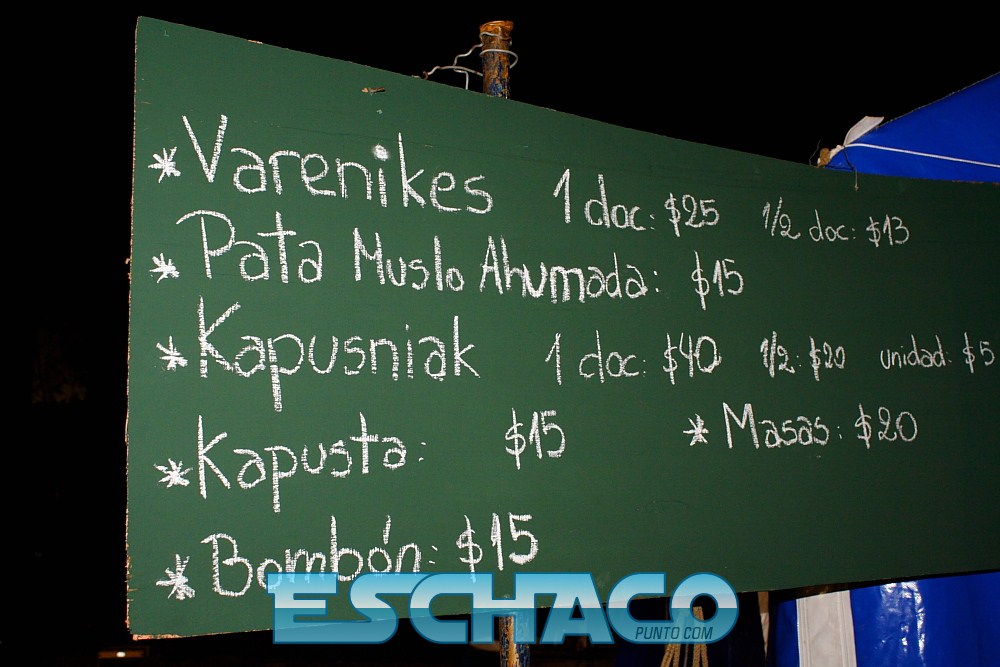 * Varenikes 1 doc: $25 1/2 doc: $13
* Pata Muslo Ahumada: $15
* Kapusniak 1 doc: $40 1/2: $20 unidad: $5
* Kapusta: $15 * Masas: $20
* Bombón: $15
ESCHACO
PUNTO COM